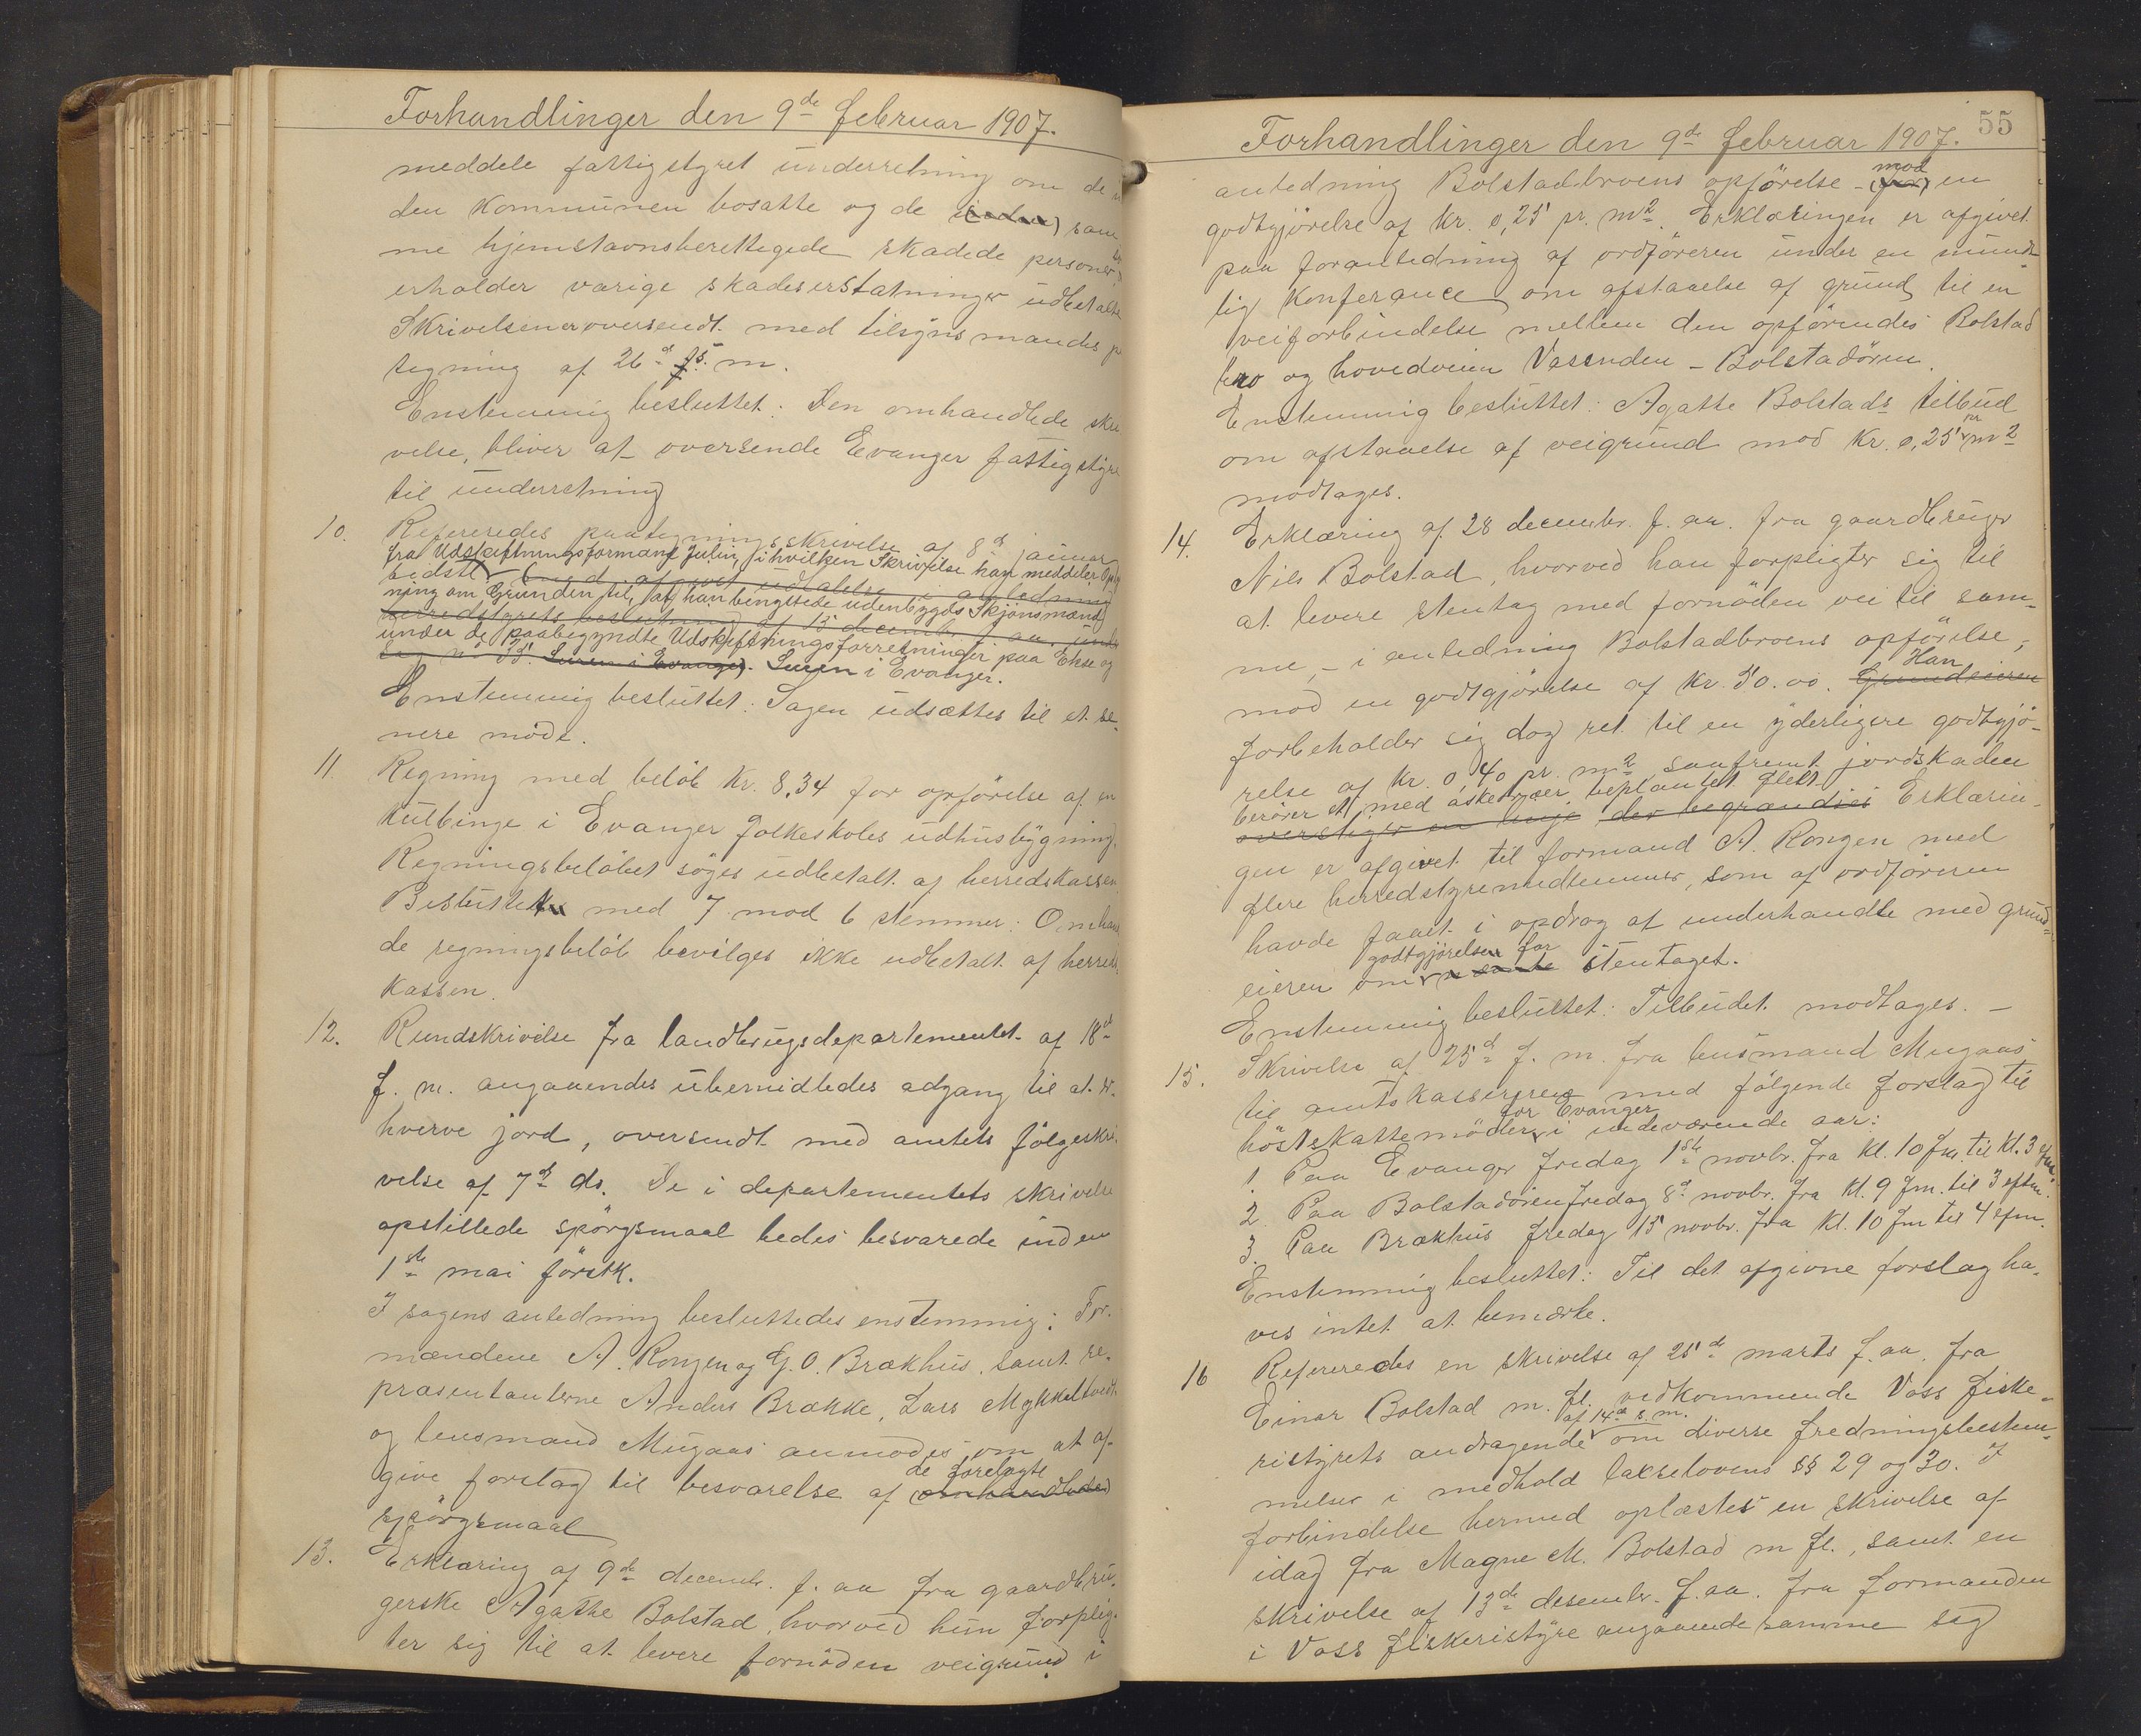 Forhandlinger den 9de februar 1907.
meddele fattigstyret underretning om de i
den Kommunen bosatte og de sam
me hjemstavnsberettigede skadede personer,
erholder varige skadeserstatninger udbetalte
Skrivelsen er oversendt med tilsynsmandes p
tegning af 26d f. m.
Enstemmig besluttet: Den omhandlede skri
velse, bliver at oversende Evanger fattigstyre
til underretning
10. Refereredes paategningsskrivelse af 8d januar
fra Udskiftningsformand Juliu, i hvilken Skrivelse han meddeler Oply
ning om Grunden til, at han benyttede udenbygds Skjønsmænd
under de paabegyndte Udskiftningsforretninger paa Ekse og
Suren i Evanger.
Enstemmig besluttet: Sagen udsættes til et se-
nere møde.
11. Regning med beløb Kr. 8,34 for opførelse af en
Kulbinge i Evanger folkeskoles udhusbygning.
Regningsbeløbet søges udbetalt af herredskassen
Besluttet med 7 mod 6 stemmer: Omhand
de regningsbeløb bevilges ikke udbetalt af herreds
kassen.
12. Rundskrivelse fra landbrugsdepartementet af 18de
f. m. angaaendes ubemidledes adgang til at er-
hverve jord, oversendt med amtets følgeskri-
velse af 7d ds. De i departementets skrivelse
opstillede spørgsmaal bedes besvarede inden
1ste mai førstk.
I sagens anledning besluttedes enstemmig: For-
mændene A. Rongen og G. O. Brækhus, samt re-
præsentanterne Anders Brække, Lars Mykkeltvedt
og lensmand Mugaas anmodes om at af-
give forslag til besvarelse af de forelagte
spørgsmaal
13. Erklæring af 9de decembr. f. aa fra gaardbru-
gerske Agathe Bolstad, hvorved hun forplig-
ter sig til at levere fornøden veigrund i
55
Forhandlinger den 9de februar 1907.
anledning Bolstadbroens opførelse - mod en
godtgjørelse af Kr. 0,25 pr. m2. Erklæringen er afgivet
paa foranledning af ordføreren under en mundt-
lig Konferance om afstaaelse af grund til en
veiforbindelse mellem den opførendes Bolstad
bro og hovedveien Vassenden - Bolstadøren.
Enstemmig besluttet: Agatte Bolstads tilbud
om afstaaelse af veigrund mod Kr. 0,25 pr m2
modtages.
14. Erklæring af 28 decembr. f. aa. fra gaardbruger
Nils Bolstad, hvorved han forpligter sig til
at levere stentag med fornøden vei til sam-
me, - i anledning Bolstadbroens opførelse,
mod en godtgjørelse af Kr. 50.00. Han
forbeholder sig dog ret til en yderligere godtgjø-
relse af Kr. 0,40 pr. m2 saafremt jordskaden
berører et med asketrær beplantet flekt. Erklærin-
gen er afgivet til formand A. Rongen med
flere herredstyremedlemmer, som af ordføreren
havde faaet i opdrag at underhandle med grund-
eieren om godtgjørelsen for stentaget.
Enstemmig besluttet: Tilbudet modtages. -
15. Skrivelse af 25d f. m. fra lensmand Mugaas
til amtskassereren med følgende forslag til
høstskattemøder for Evanger i indeværende aar:
1. Paa Evanger fredag 1ste novbr. fra Kl. 10 fm. til Kl. 3 efm.
2. Paa Bolstadøren fredag 8d novbr. fra Kl. 9 fm. til 3 eftm.
3. Paa Brækhus fredag 15 novbr. fra Kl. 10 fm til 4 efm.
Enstemmig besluttet: Til det afgivne forslag ha-
ves intet at bemærke.
16 Refereredes en skrivelse af 25de marts f. aa. fra
Einar Bolstad m. fl. vedkommende Voss fiske-
ristyrets andragende af 14de s. m. om diverse fredningsbestem-
melser i medhold lakselovens §§ 29 og 30. I
forbindelse hermed oplæstes en skrivelse af
idag fra Magne M. Bolstad m fl., samt en
skrivelse af 13de desembr. f. aa. fra formanden
i Voss fiskeristyre angaaende samme sag